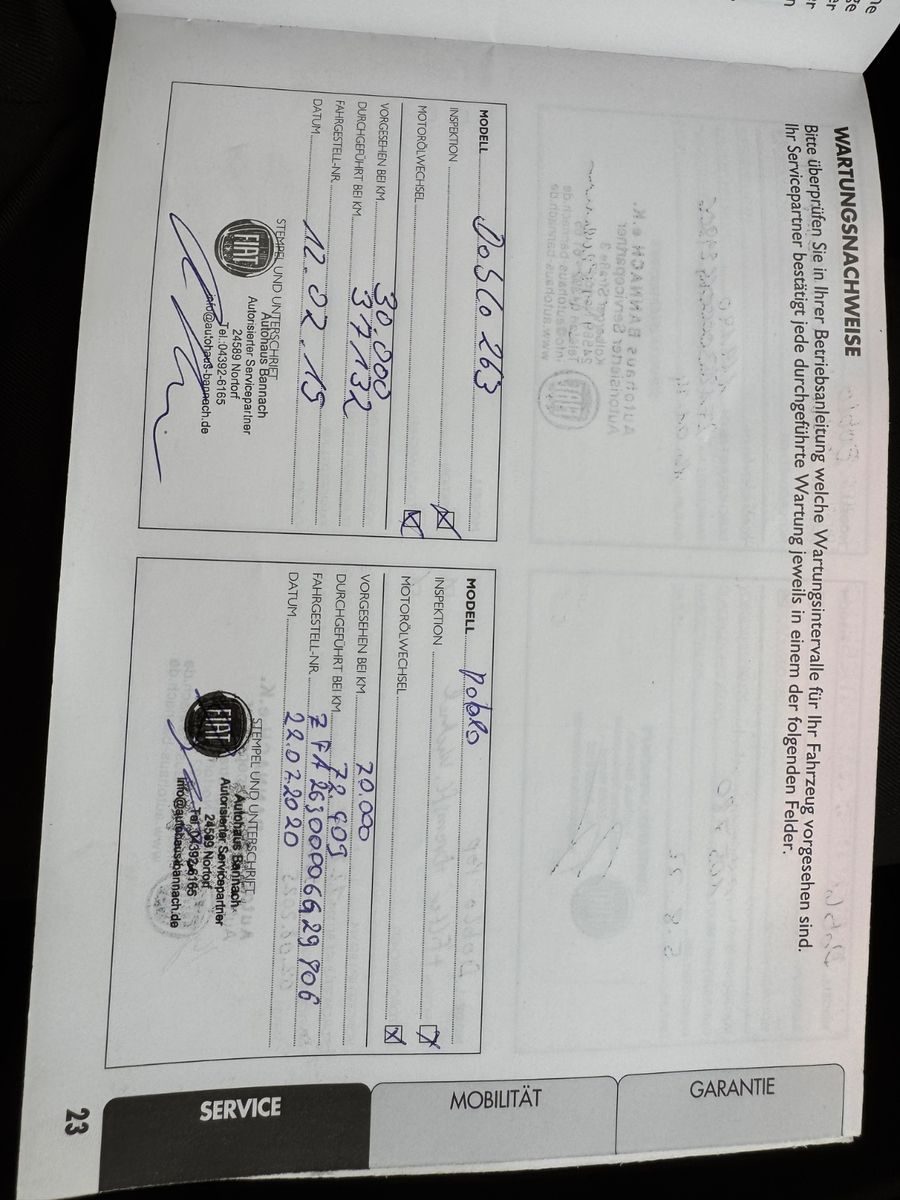 WARTUNGSNACHWEISE
Bitte überprüfen Sie in Ihrer Betriebsanleitung welche Wartungsintervalle für Ihr Fahrzeug vorgesehen sind.
Ihr Servicepartner bestätigt jede durchgeführte Wartung jeweils in einem der folgenden Felder.
MODELL Doblo 263
INSPEKTION
MOTORÖLWECHSEL
VORGESEHEN BEI KM 30.000
DURCHGEFÜHRT BEI KM 37132
FAHRGESTELL-NR.
DATUM 12.02.19
STEMPEL UND UNTERSCHRIFT
FIAT
Autohaus Bannach
Autorisierter Servicepartner
24589 Nortorf
Tel.:04392-6165
info@autohaus-bannach.de
MODELL Doblo
INSPEKTION
MOTORÖLWECHSEL
VORGESEHEN BEI KM
DURCHGEFÜHRT BEI KM 72.409
FAHRGESTELL-NR.
DATUM
STEMPEL UND UNTERSCHRIFT
FIAT
Autohaus Bannach
Autorisierter Servicepartner
24589 Nortorf
Tel.:04392-6165
info@autohaus-bannach.de
GARANTIE
MOBILITÄT
SERVICE
23